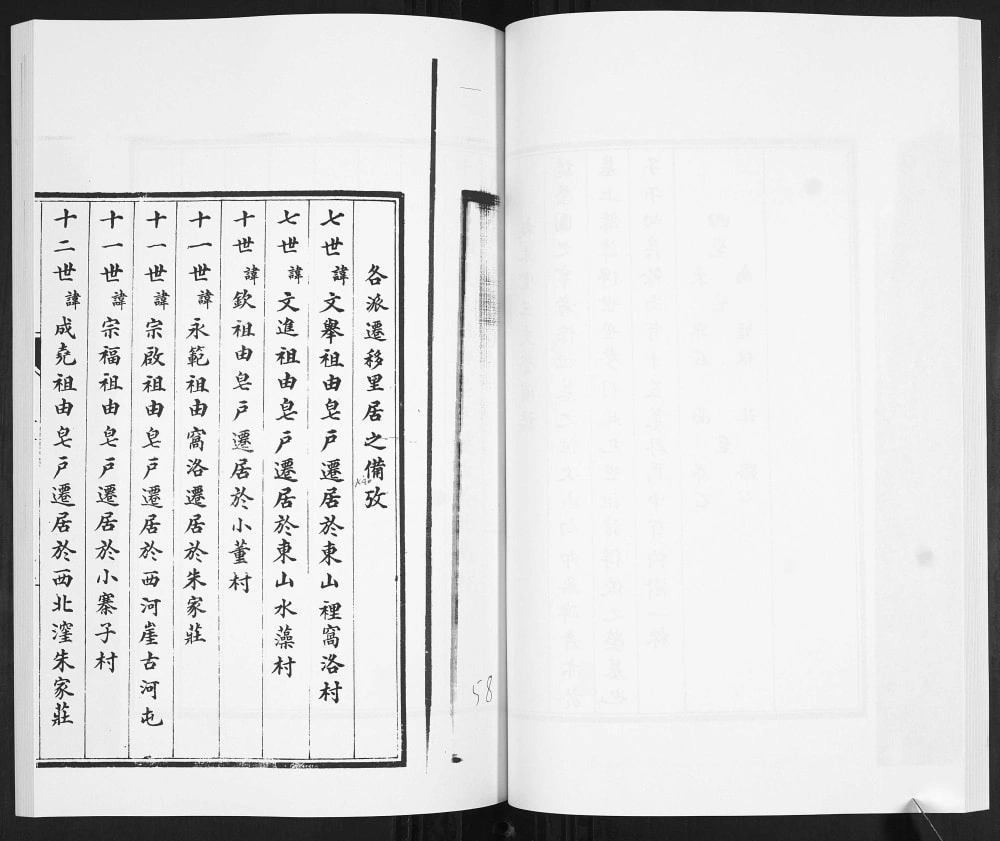 各派遷移里居之備攷
七世諱文舉祖由皂戶遷居於東山裡窩洛村
七世諱文進祖由皂戶遷居於東山水藻村
十世諱欽祖由皂戶遷居於小董村
十一世諱永範祖由窩洛遷居於朱家莊
十一世諱宗啟祖由皂戶遷居於西河崖古河屯
十一世諱宗福祖由皂戶遷居於小寨子村
十二世諱成堯祖由皂戶遷居於西北漥朱家莊
58